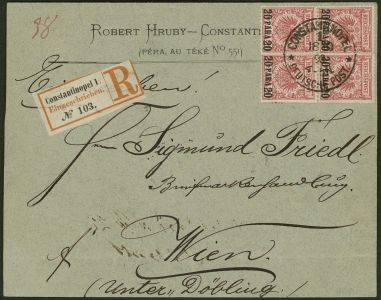 98
ROBERT HRUBY—CONSTANTI
(PÉRA, AU TÉKÉ NO 551)
20 PARA 20 20 PARA 20
20 PARA 20 20 PARA 20
CONSTANTINOPEL
DEUTSCHE POST
Einschreiben!
Constantinopel 1.
Eingeschrieben.
№ 103.
R
Herrn Sigmund Friedl
Briefmarkenhandlung
Wien.
(Unter Döbling)